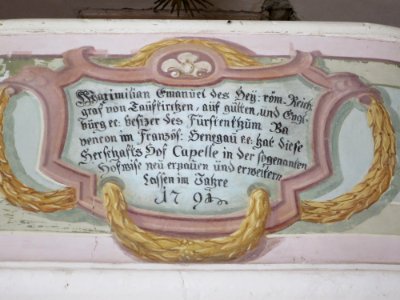 Maximilian Emanuel des Hey: röm: Reich
graf von Taufkirchen, auf gutten, und Engl
burg ec: besizer des Fürstenthum Ba
vencon im Französ: Henegau e.c: hat diese
Herschafts Hof Capelle in der sogenanten
Hofwise neu erbauen und erweitern
Lassen im Jahre
179